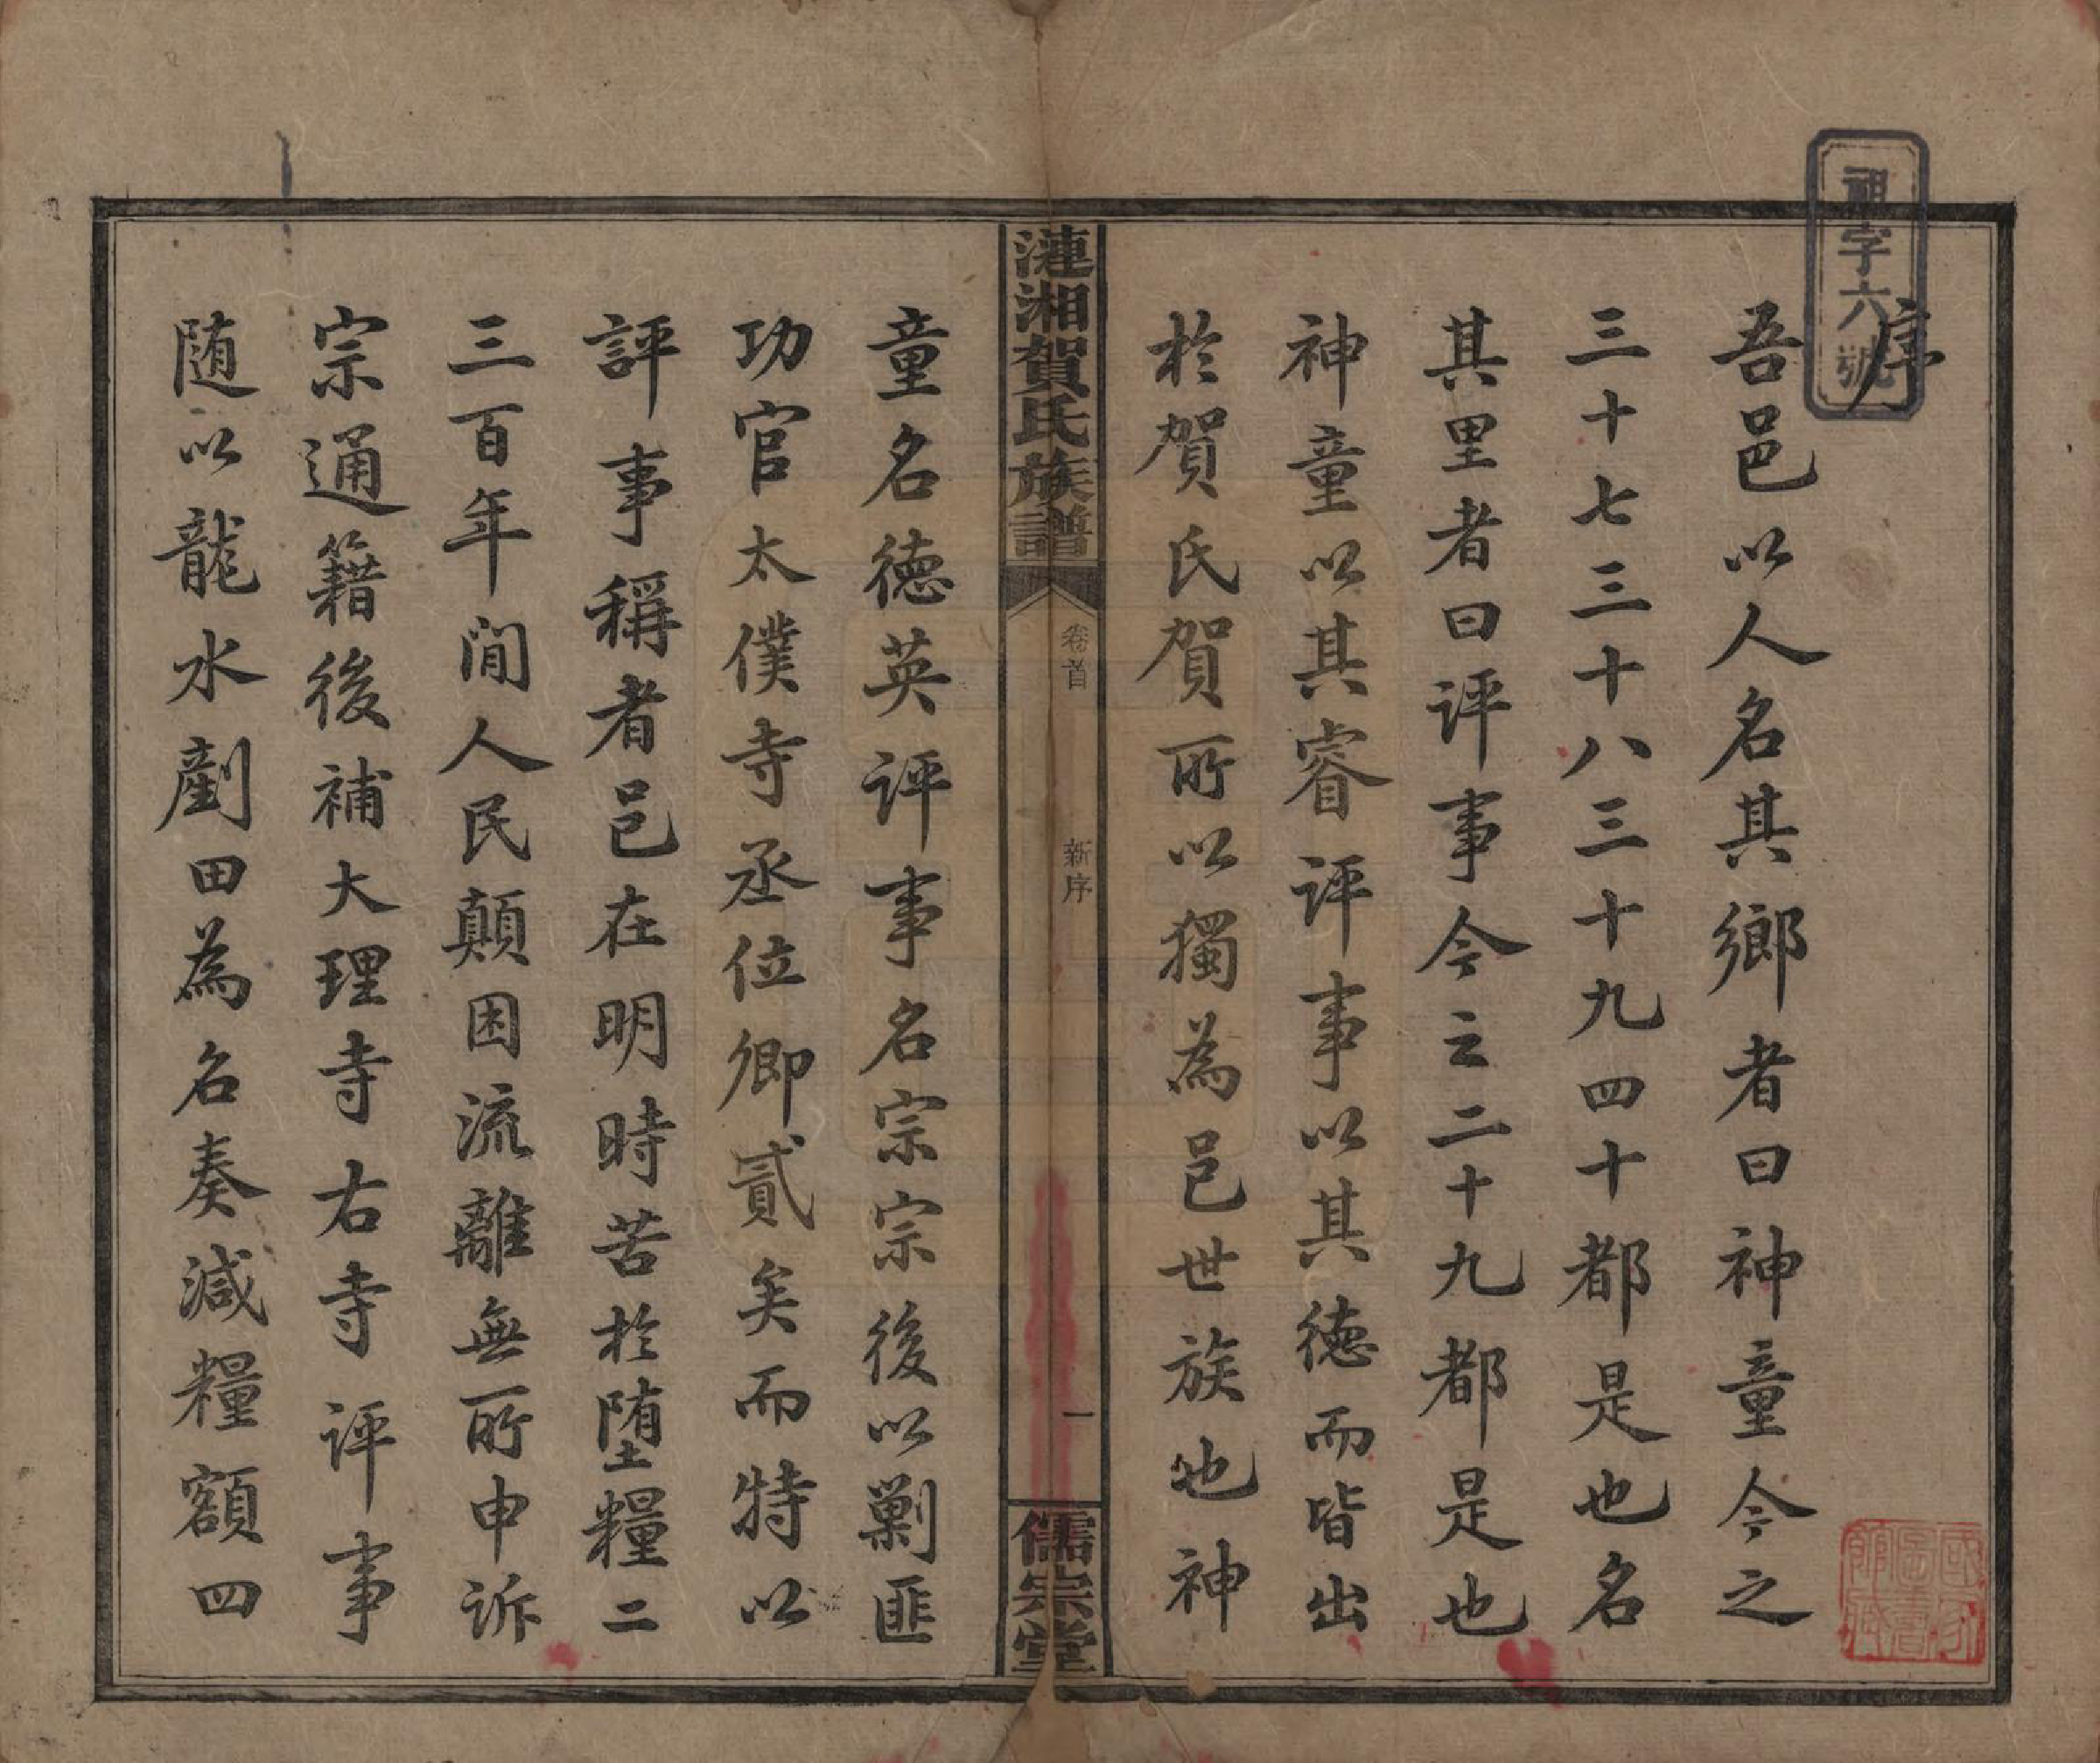 祖字六號
序
吾邑以人名其鄉者曰神童今之
三十七三十八三十九四十都是也名
其里者曰评事今之二十九都是也
神童以其睿评事以其德而皆出
於賀氏賀所以獨為邑世族也神
漣湘賀氏族譜
卷首
新序
一
儒宗堂
童名德英评事名宗宗後以剿匪
功官太僕寺丞位卿貳矣而特以
評事稱者邑在明時苦於堕糧二
三百年間人民顛困流離無所申訴
宗通籍後補大理寺右寺评事
随以龍水剷田為名奏減糧額四
國家圖書館藏